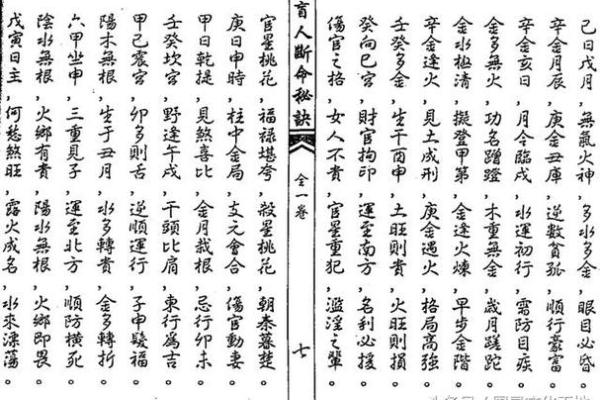 己日戌月，無氣火神，多水多金，眼目必昏。
辛金月辰，庚金丑庫，逆數貧孤，順行豪富。
辛金亥日，月令臨戌，水運初行，需防目疾。
金多無火，功名蹭蹬，木重無金，歲月蹉跎。
金水極清，擬登甲第，金逢火煉，早步金階。
辛金逢火，見土成刑，庚金遇火，格局高強。
壬癸多金，生于酉申，土旺則貴，火旺則損。
癸向巳宮，財官拘印，運至南方，名利必援。
傷官之格，女人不貴，官星重犯，濫淫之輩。
盲人斷命秘訣
全一卷
七
官星桃花，福祿堪夸，殺星桃花，朝秦暮楚。
庚日申時，柱中金局，支元會合，傷官動妻。
甲日乾提，見煞喜比，金月栽根，忌行卯未。
壬癸坎宮，野逢午戌，干頭比肩，東行為吉。
甲己震宮，卯多則舌，逆順運行，子申髮福。
陽木無根，生于丑月，水多轉貴，金多轉折。
六甲坐申，三重見子，運至北方，順防橫死。
陰水無根，火鄉有貴，陽水無根，火鄉即畏。
戊寅日主，何愁煞旺，露火成名，水來漂蕩。